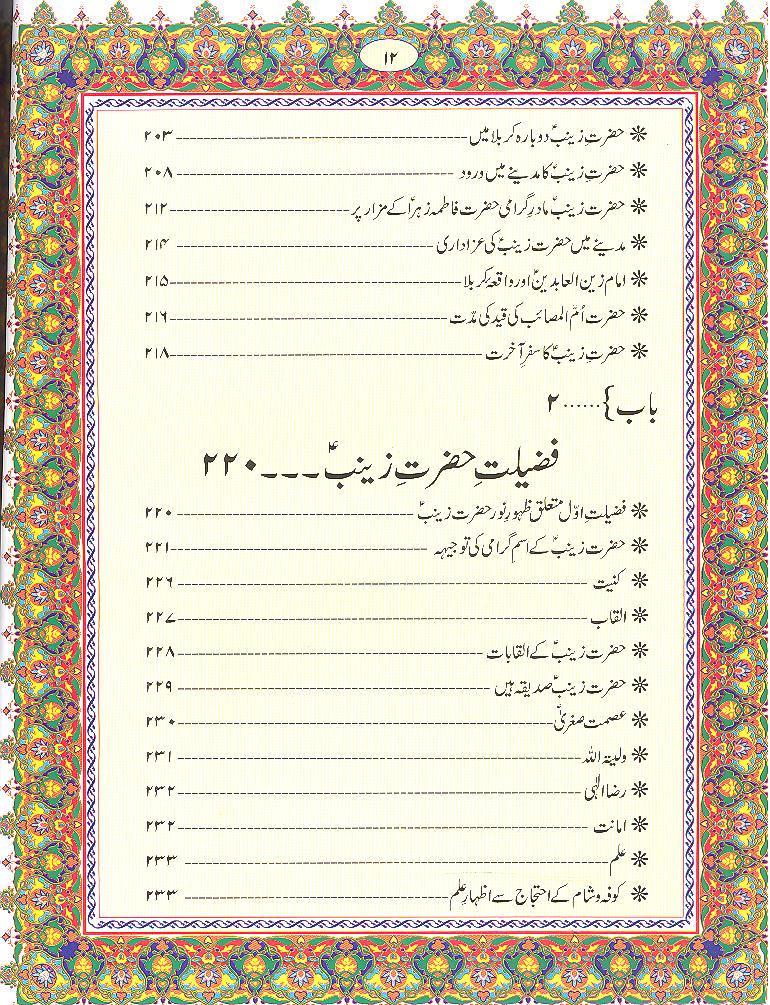 ۱۲
❋ حضرتِ زینبؑ دوبارہ کربلا میں ------------------------------ ۲۰۳
❋ حضرتِ زینبؑ کا مدینے میں ورود ------------------------------ ۲۰۸
❋ حضرت زینبؑ مادرِ گرامی حضرت فاطمہ زہراؑ کے مزار پر -------------------- ۲۱۲
❋ مدینے میں حضرت زینبؑ کی عزاداری ---------------------------- ۲۱۴
❋ امام زین العابدینؑ اور واقعۂ کربلا ------------------------------ ۲۱۵
❋ حضرت اُمّ المصائب کی قید کی مدّت ---------------------------- ۲۱۶
❋ حضرتِ زینبؑ کا سفرِ آخرت -------------------------------- ۲۱۸
باب } ...... ۲
فضیلتِ حضرتِ زینبؑ ۔۔۔ ۲۲۰
❋ فضیلتِ اوّل متعلق ظہورِ نور حضرت زینبؑ ------------------------ ۲۲۰
❋ حضرت زینبؑ کے اسمِ گرامی کی توجیہہ -------------------------- ۲۲۱
❋ کنیت ------------------------------------------ ۲۲۶
❋ القاب ------------------------------------------ ۲۲۷
❋ حضرت زینبؑ کے القابات -------------------------------- ۲۲۸
❋ حضرت زینبؑ صدیقہ ہیں -------------------------------- ۲۲۹
❋ عصمت صغریٰ -------------------------------------- ۲۳۰
❋ ولیتہ اللہ ---------------------------------------- ۲۳۱
❋ رضا الٰہی ---------------------------------------- ۲۳۲
❋ امانت ------------------------------------------ ۲۳۲
❋ علم -------------------------------------------- ۲۳۳
❋ کوفہ و شام کے احتجاج سے اظہارِ علم -------------------------- ۲۳۳